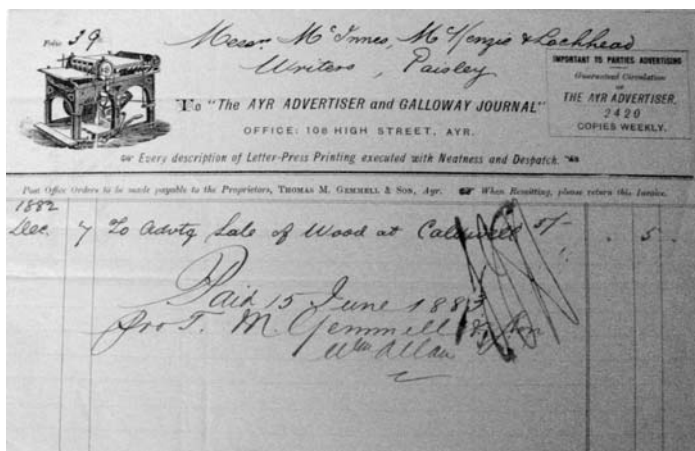 Folio 39
Messrs McInnes, McKenzie & Lochhead
Writers, Paisley
IMPORTANT TO PARTIES ADVERTISING
Guaranteed Circulation
OF
THE AYR ADVERTISER,
2420
COPIES WEEKLY.
To "The AYR ADVERTISER and GALLOWAY JOURNAL"
OFFICE: 108 HIGH STREET, AYR.
Every description of Letter-Press Printing executed with Neatness and Despatch.
Post Office Orders to be made payable to the Proprietors, THOMAS M. GEMMELL & SON, Ayr. When Remitting, please return this Invoice.
1882
Dec. 7 To Advtg Sale of Wood at Caldwell 5/- . 5 .
Paid 15 June 1883
pro T. M. Gemmell & Son
Wm Allan